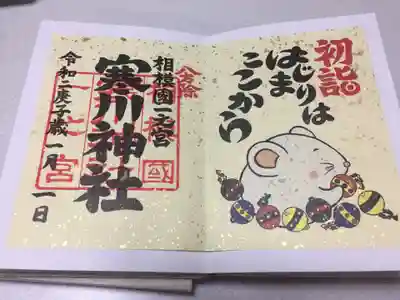 初詣
はじまりは
ここから
八方除
相模國一之宮
寒川神社
相模國
一之宮
令和二庚子歳一月一日